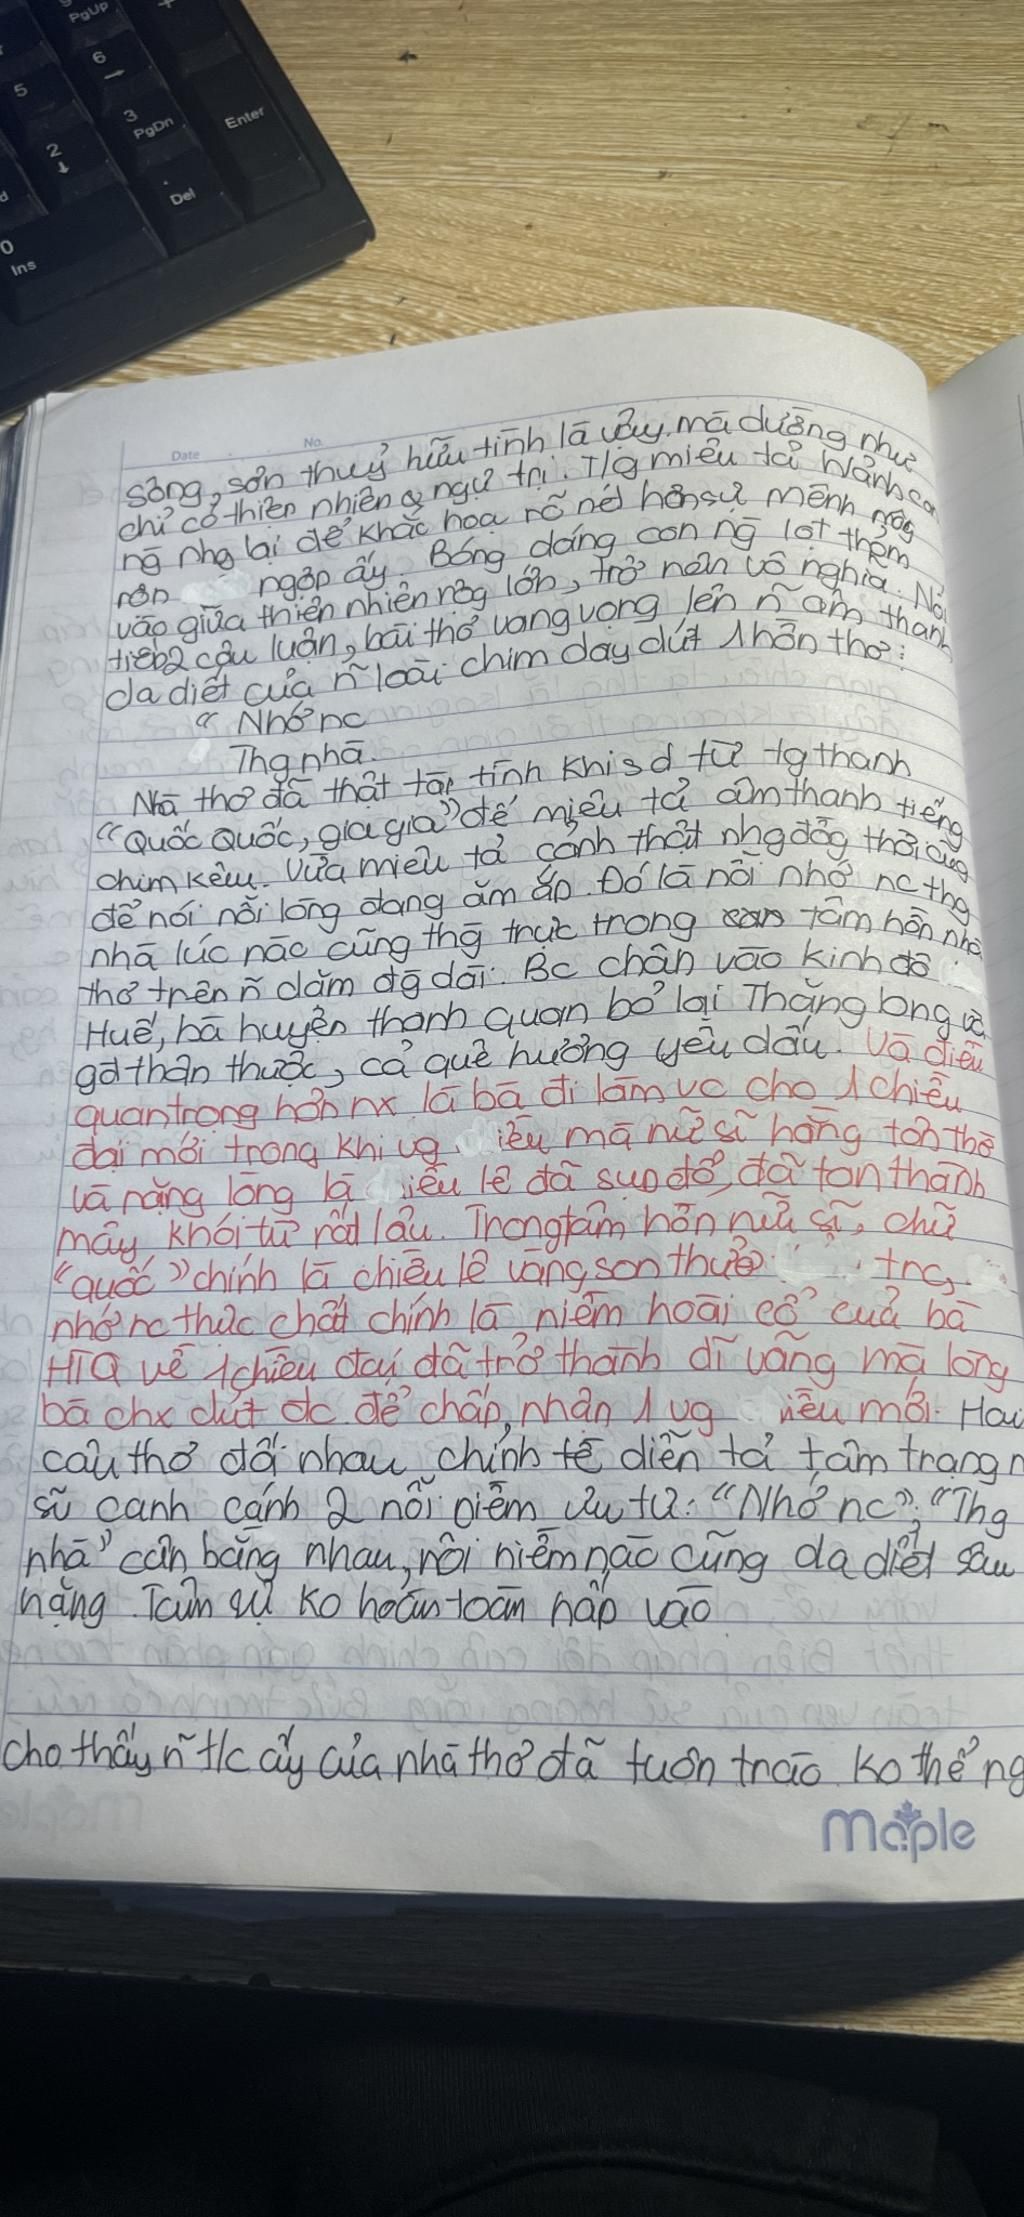 PgUp
5
6
Enter
3
PgDn
2
Del
0
Ins
Date No.
sông, sơn thuỷ hữu tình là vậy mà dường như
chỉ có thiên nhiên & ngự trị. T/g miêu tả h/ảnh con
ng̃ nhg lại để khắc hoạ rõ nét hơn sự mênh mông
rợn ngợp ấy. Bóng dáng con ng̃ lọt thỏm
vào giữa thiên nhiên rộng lớn, trở nên vô nghĩa. Nối
tiếp 2 câu luận, bài thơ vang vọng lên ñ âm thanh
da diết của ñ loài chim day dứt 1 hồn thơ:
“ Nhớ nc
Thg nhà.
Nhà thơ đã thật tài tình khi sd từ tg thanh
“Quốc Quốc, gia gia” để miêu tả âm thanh tiếng
chim kêu. Vừa miêu tả cảnh thật nhg đồg thời cũg
để nói nỗi lòng đang ăm ắp. Đó là nỗi nhớ nc thg
nhà lúc nào cũng thg̃ trực trong tâm hồn nhà
thơ trên ñ dặm đg̃ dài. Bc chân vào kinh đô
Huế, bà huyện thanh quan bỏ lại Thăng long và
gđ thân thuộc, cả quê hương yêu dấu. Và điều
quan trọng hơn nx là bà đi làm vc cho 1 chiều
đại mới trong khi vg iều mà nữ sĩ hằng tôn thờ
và nặng lòng là iều lê đã sụp đổ, đã tan thành
mây khói từ rất lâu. Trong tâm hồn nữ sĩ, chữ
“quốc” chính là chiều lê vàng son thuở trc,
nhớ nc thực chất chính là niềm hoài cổ của bà
HTQ về 1 chiều đại đã trở thành dĩ vãng mà lòng
bà chx dứt đc để chấp nhận 1 vg iều mới. Hai
câu thơ đối nhau chỉnh tề diễn tả tâm trạng n
sĩ canh cánh 2 nỗi niềm ưu tư: “Nhớ nc”, “Thg
nhà” cân bằng nhau, nỗi niềm nào cũng da diết sâu
nặng. Tâm sự ko hoàn toàn nấp vào
cho thấy ñ t/c ấy của nhà thơ đã tuôn trào ko thể ng
Maple